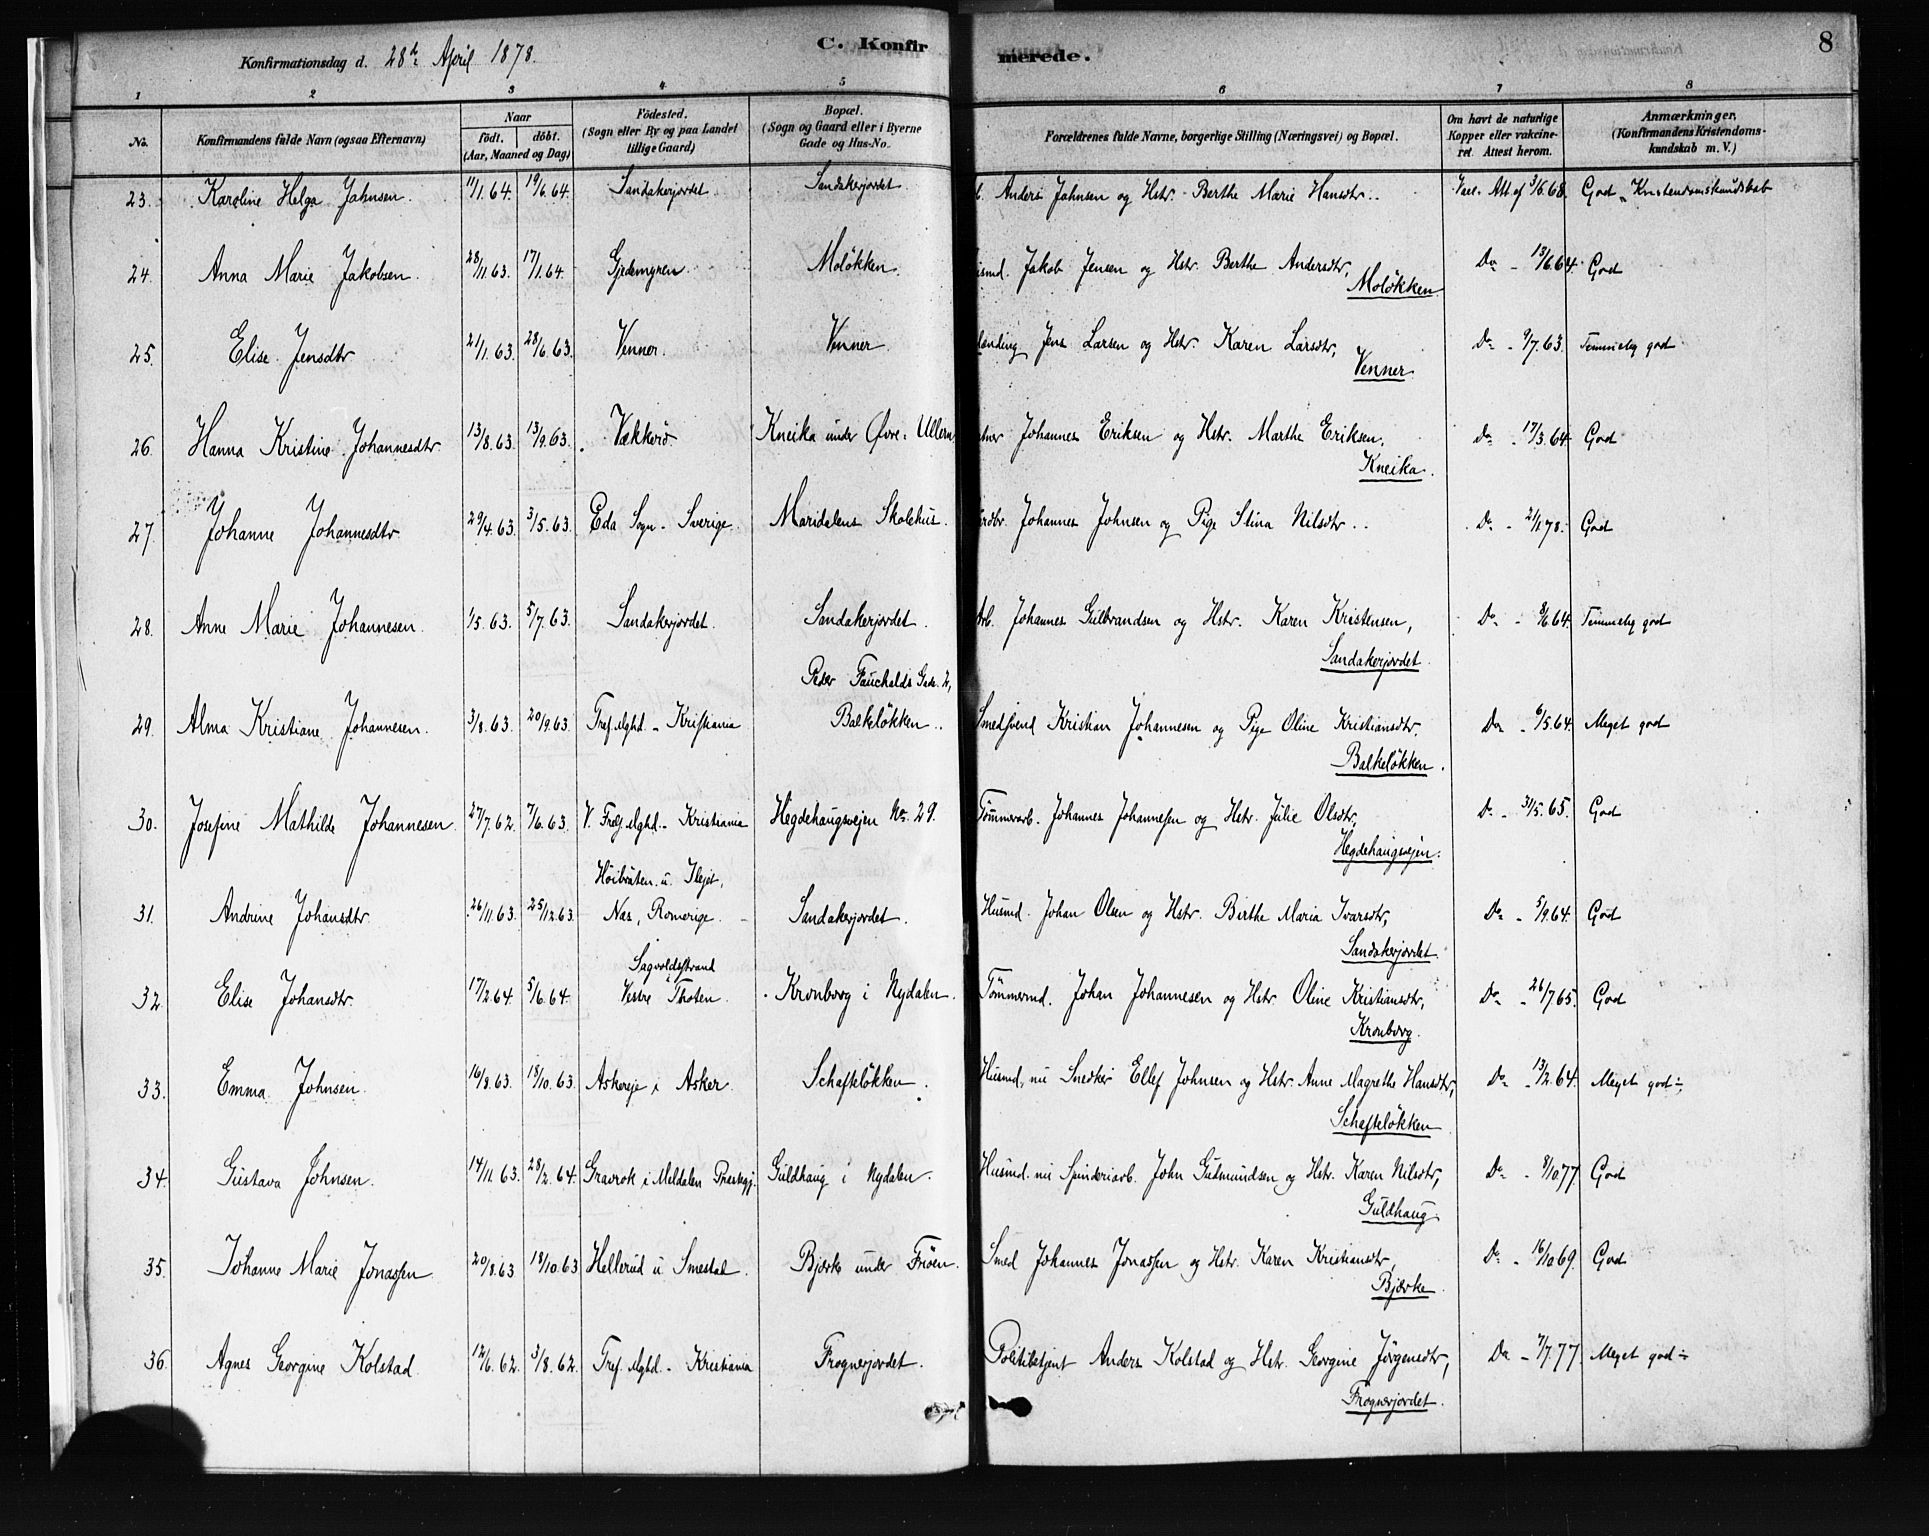 Konfirmationsdag d. 28de April 1878. C. Konfirmerede. 8
1 2 3 4 5 6 7 8
No. Konfirmandens fulde Navn (ogsaa Efternavn) Naar født. døbt. (Aar, Maaned og Dag) Födested. (Sogn eller By og paa Landet tillige Gaard) Bopæl. (Sogn og Gaard eller i Byerne Gade og Hus-No. Forældrenes fulde Navne, borgerlige Stilling (Næringsvei) og Bopæl. Om havt de naturlige Kopper eller vakcineret. Attest herom. Anmærkninger. (Konfirmandens Kristendomskundskab m. V.)
23. Karoline Helga Jahnsen. 11/1.64. 19/6.64. Sandakerjordet Sandakerjordet Anders Jahnsen og Hstr. Berthe Marie Hansdtr. Vacc. Att af 3/6.68. God Kristendomskundskab
24. Anna Marie Jakobsen. 28/11.63. 17/1.64. Gjedemyren Moløkken. Jakob Jensen og Hstr. Berthe Andersdtr, Do - 13/6.64. God
Moløkken
25. Elise Jensdtr 21/1.63. 28/6.63. Venner. Venner Jens Larsen og Hstr. Karen Larsdtr, Do - 9/7.63. Temmelig god
Venner
26. Hanna Kristine Johannesdtr 13/8.63. 13/9.63. Vækkerö Kneika under Øvre Ullern, Johannes Eriksen og Hstr. Marthe Eriksen, Do - 17/3.64. God
Kneika.
27. Johanne Johannesdtr 29/4.63. 3/5.63. Eda Sogn - Sverige. Maridalens Skolehus. Johannes Johnsen og Pige Stina Nilsdtr. Do - 2/1.78. God
28. Anne Marie Johannesen. 1/5.63. 5/7.63. Sandakerjordet. Sandakerjordet. Arb. Johannes Gulbrandsen og Hstr. Karen Kristensen, Do - 8/6.64. Temmelig god
Sandakerjordet
Peder Fauchalds Gade 2,
29. Alma Kristiane Johannesen. 3/8.63. 20/9.63. Tref. Mghd. - Kristiania Balkeløkken. Smedsvend Kristian Johannesen og Pige Oline Kristiansdtr. Do - 6/5.64. Meget god
Balkeløkken.
30. Josefine Mathilde Johannesen. 27/7.62. 7/6.63. V. Tref. Mghd. - Kristiania Hegdehaugsvejen No 29. Tømmerarb. Johannes Johannesen og Hstr. Julie Olsdtr, Do - 31/5.65. God
Hegdehaugsvejen.
Höibraten u.
31. Andrine Johansdtr 26/11.63. 25/12.63. Næs, Romerige. Sandakerjordet. Husmd. Johan Olsen og Hstr. Birthe Maria Ivarsdtr, Do - 5/9.64. God
Sandakerjordet.
Sagvoldsstrand
32. Elise Johansdtr. 17/2.64. 5/6.64. Vestre Thoten. Kronborg i Nydalen. Tømmermd. Johan Johannesen og Hstr. Oline Kristiansdtr, Do - 26/7.65. God
Kronborg.
33. Emma Johnsen. 16/8.63. 18/10.63. Askereje i Asker. Schafteløkken. Husmd, nu Snedker Ellef Johnsen og Hstr. Anne Magrethe Hansdtr, Do - 13/2.64. Meget god -
Schafteløkken
34. Gustava Johnsen. 14/11.63. 28/2.64. Gravrok i Meldalen Præstegj. Guldhaug i Nydalen. Husmd. nu Spinderiarb. John Gudmundsen og Hstr. Karen Nilsdtr, Do - 8/10.77. God
Guldhaug
35. Johanne Marie Jonassen 20/8.63 18/10.63 Hellerud u. Smestad. Bjerke under Fröen. Smed Johannes Jonassen og Hstr. Karen Kristiansdtr, Do - 16/10.69. God
Bjerke.
36. Agnes Georgine Kolstad 12/6.62. 3/8.62. Tref. Mghd. - Kristiania Frognerjordet. Politibetjent Anders Kolstad og Hstr. Georgine Jörgensdtr, Do - 7/7.77. Meget god -
Frognerjordet.